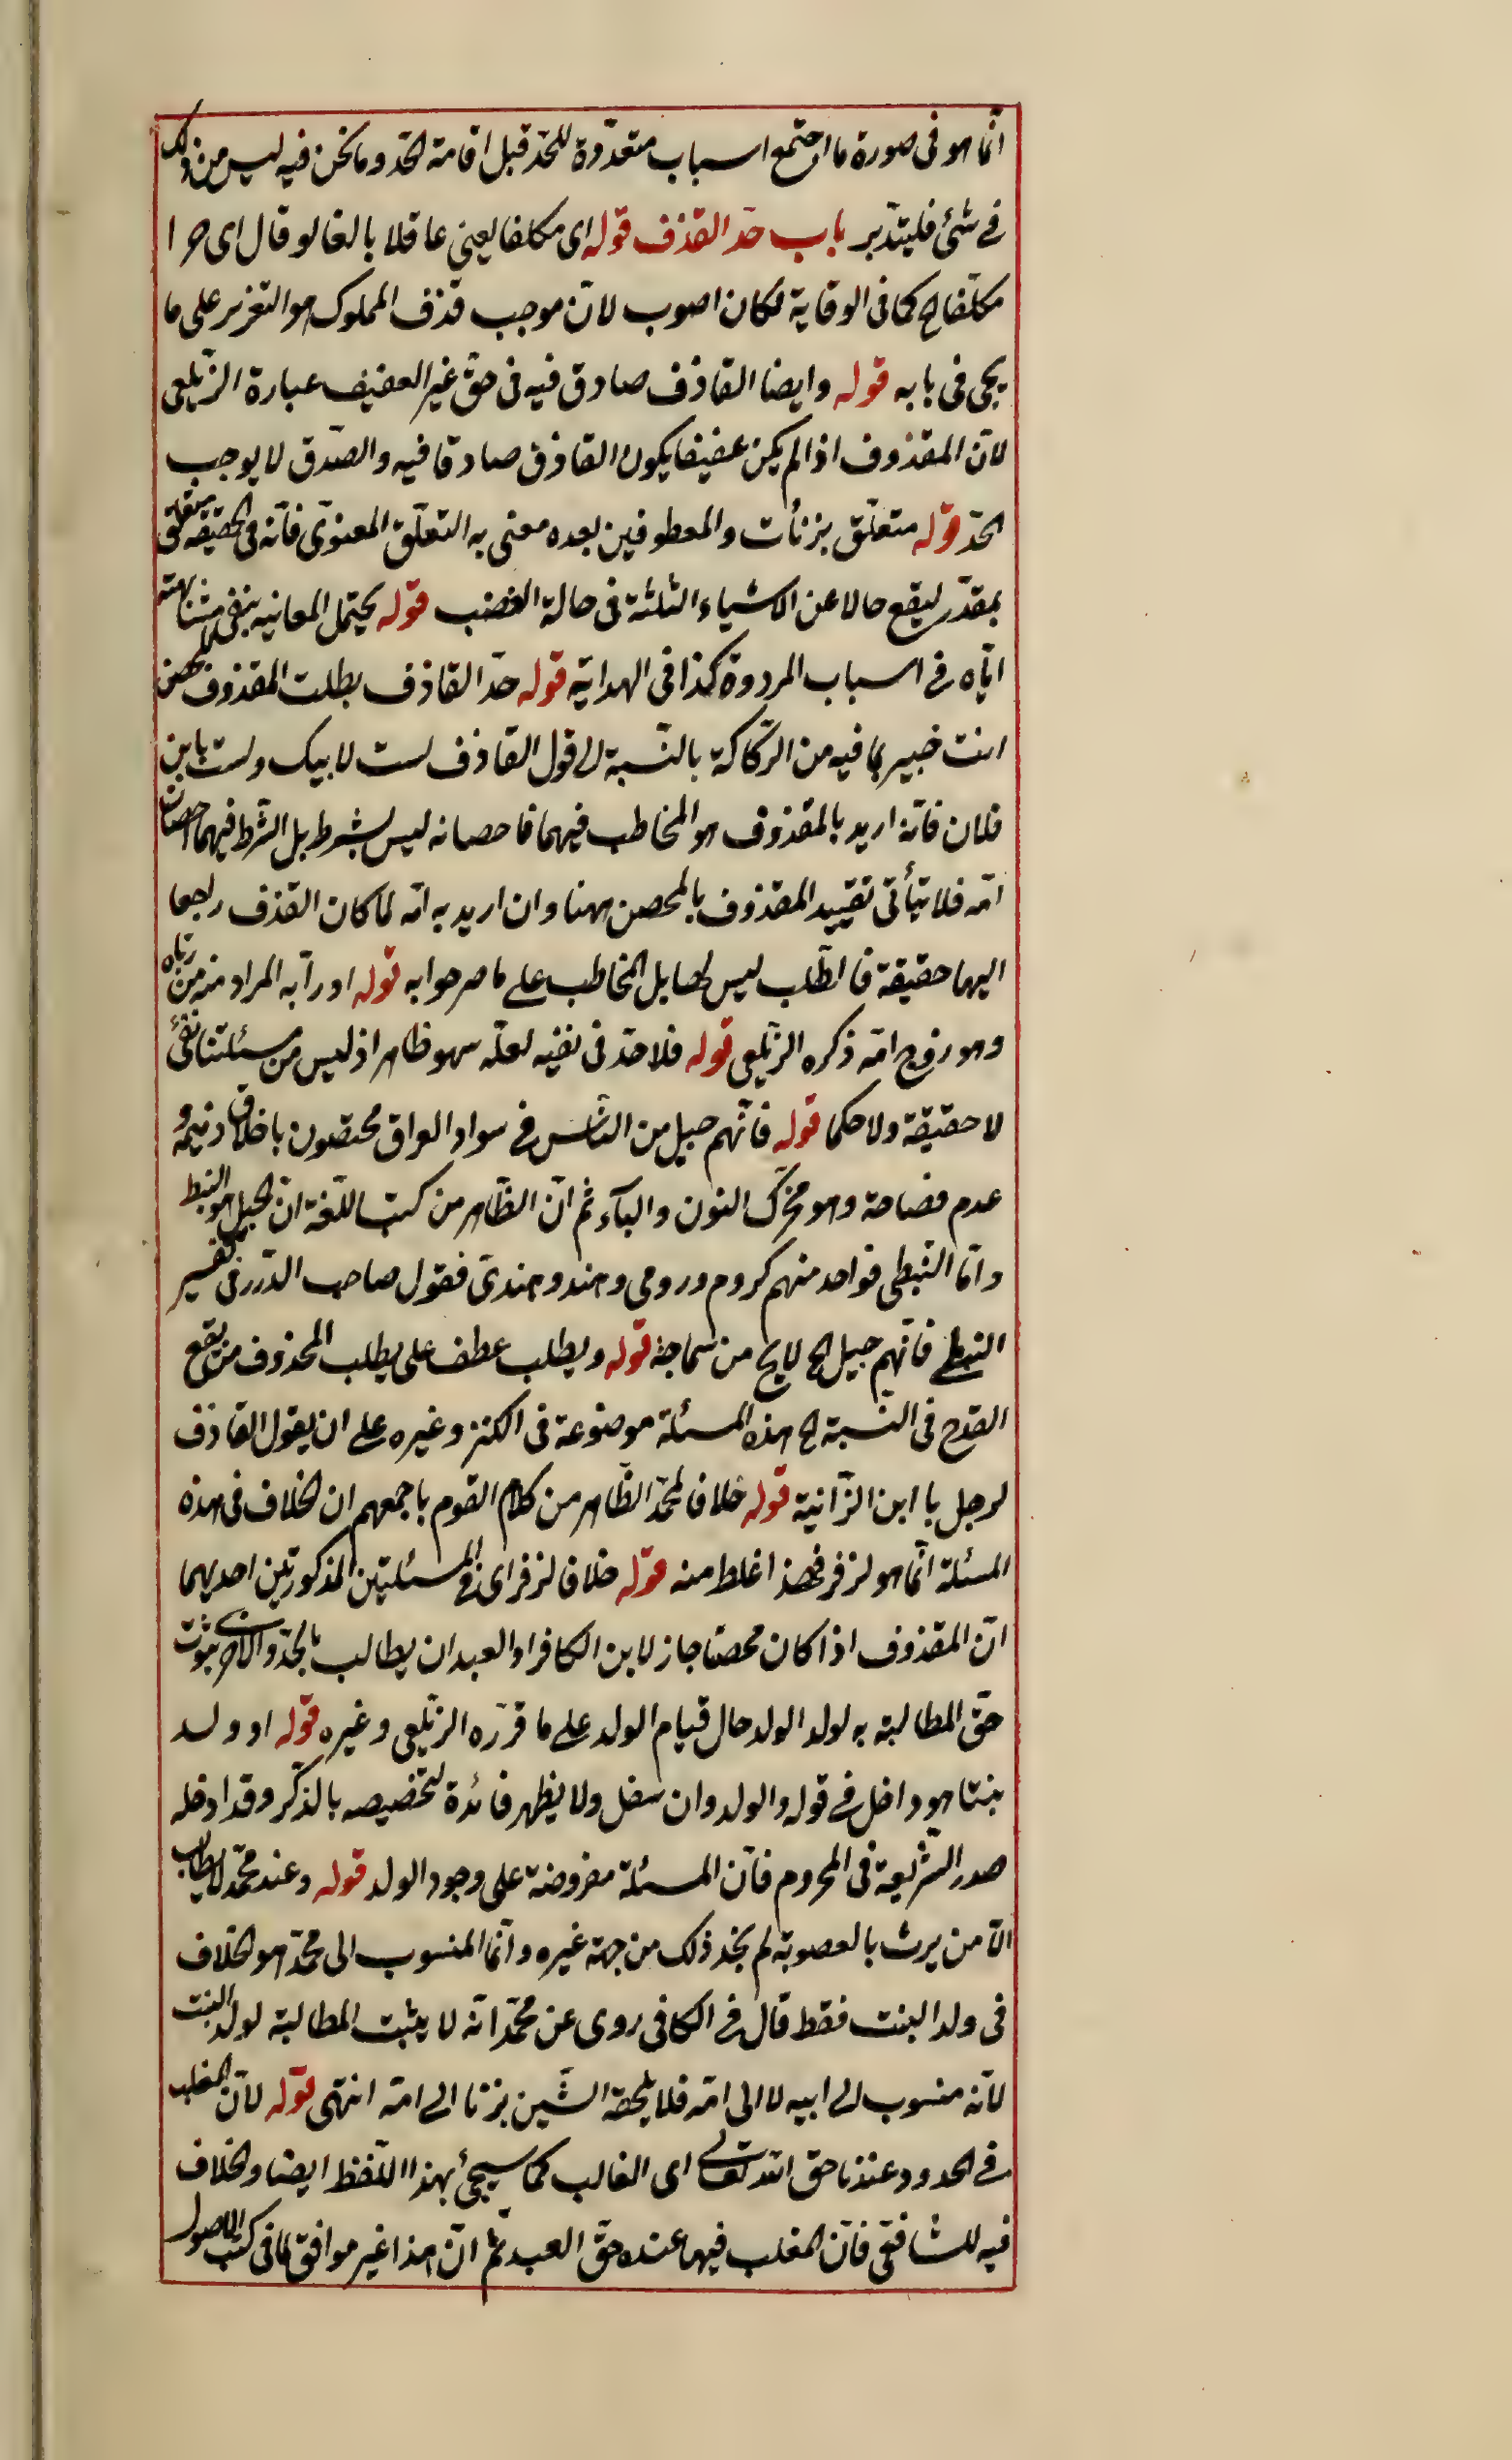 انما هو فى صورة ما اجتمع اسباب متعددة للحد قبل اقامة الحد وما نحن فيه ليس من ذلك
فى شئ فليتدبر باب حد القذف قوله اى مكلفا يعنى عاقلا بالغا لو قال اى حرا
مكلفا الخ كما فى الوقاية لكان اصوب لان موجب قذف المملوك هو التعزير على ما
يجى فى بابه قوله وايضا القاذف صادق فيه فى حق غير العفيف عبارة الزيلعى
لان المقذوف اذا لم يكن عفيفا يكون القاذف صادقا فيه والصدق لا يوجب
الحد قوله متعلق بزنأت والمعطوفين بعده معنى به التعلق المعنوى فانه فى الحقيقة متعلق
بمقدر ليقع حالا عن الاشياء الثلثة فى حالة الغضب قوله يحتمل المعانيه بنفى مشابهته
اباه فى اسباب المروة كذا فى الهداية قوله حد القاذف بطلب المقذوف المحصن
انت خبير بما فيه من الركاكة بالنسبة الى قول القاذف لست لابيك ولست بابن
فلان فانه اريد بالمقذوف هو المخاطب فيهما فاحصانه ليس بشرط بل الشرط فيهما احصان
امه فلا يتأتى تقييد المقذوف بالمحصن ههنا وان اريد به امه لما كان القذف راجعا
اليها حقيقة فالطلب ليس لها بل المخاطب على ما صرحوا به قوله او رابه المراد منه من رباه
وهو زوج امه ذكره الزيلعى قوله فلا حد فى نفيه لعله سهو ظاهر اذ ليس من مسئلتنا نفى
لا حقيقة ولا حكما قوله فانهم جيل من الناس فى سواد العراق مختصون باخلاق ذميمة و
عدم فصاحة وهو محرك النون والباء ثم ان الظاهر من كتب اللغة ان الجيل هو النبط
واما النبطى فواحد منهم كروم ورومى وهند وهندى فقول صاحب الدرر فى تفسير
النبطى فانهم جيل الخ لا يخ من سماجة قوله ويطلب عطف على يطلب المحذوف من يقع
القدح فى النسبة الخ هذه المسئلة موضوعة فى الكنز وغيره على ان يقول القاذف
لرجل يا ابن الزانية قوله خلافا لمحمد الظاهر من كلام القوم باجمعهم ان الخلاف فى هذه
المسئلة انما هو لزفر فهذا غلط منه قوله خلافا لزفر اى فى المسئلتين المذكورتين احديهما
ان المقذوف اذا كان محصنا جاز لابن الكافر او العبد ان يطالب بالحد والاخرى ثبوت
حق المطالبة به لولد الولد حال قيام الولد على ما قرره الزيلعى وغيره قوله او ولد
بنتا هو داخل فى قوله والولد وان سفل ولا يظهر فائدة لتخصيصه بالذكر وقد ادخله
صدر الشريعة فى المحروم فان المسئلة مفروضة على وجود الولد قوله وعند محمد لا يطالب
الا من يرث بالعصوبة لم نجد ذلك من جهة غيره وانما المنسوب الى محمد هو الخلاف
فى ولد البنت فقط قال فى الكافى روى عن محمد انه لا يثبت المطالبة لولد البنت
لانه منسوب الى ابيه لا الى امه فلا يلحقه الشين بزنا الى امه انتهى قوله لان المغلب
فى الحدود عندنا حق الله تعالى اى الغالب كما سيجئ بهذا اللفظ ايضا والخلاف
فيه للشافعى فان المغلب فيها عنده حق العبد ثم ان هذا غير موافق لما فى كتب الاصول